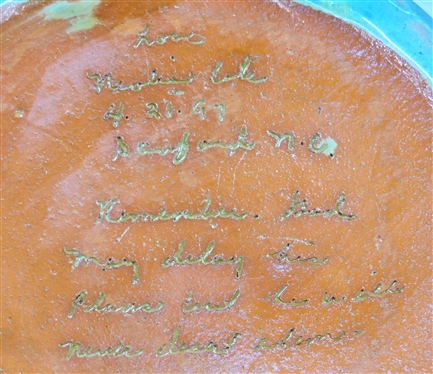 Love
Neolia Cole
Sanford N.C.
Remember. God
May delay his
Plans but he will
Never